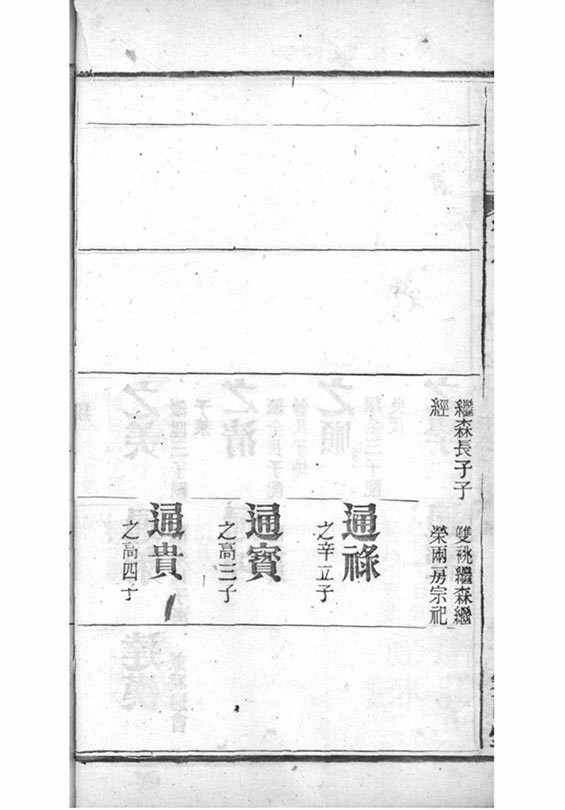 繼森長子子
經
雙祧繼森繼
榮兩房宗祀
通祿
之辛立子
通寶
之高三子
通貴
之高四子